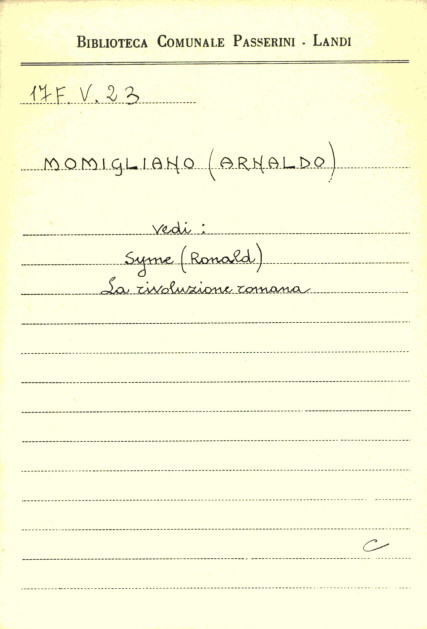 BIBLIOTECA COMUNALE PASSERINI - LANDI
17F. V. 23
MOMIGLIANO (ARNALDO)
vedi:
Syme (Ronald)
La rivoluzione romana
C